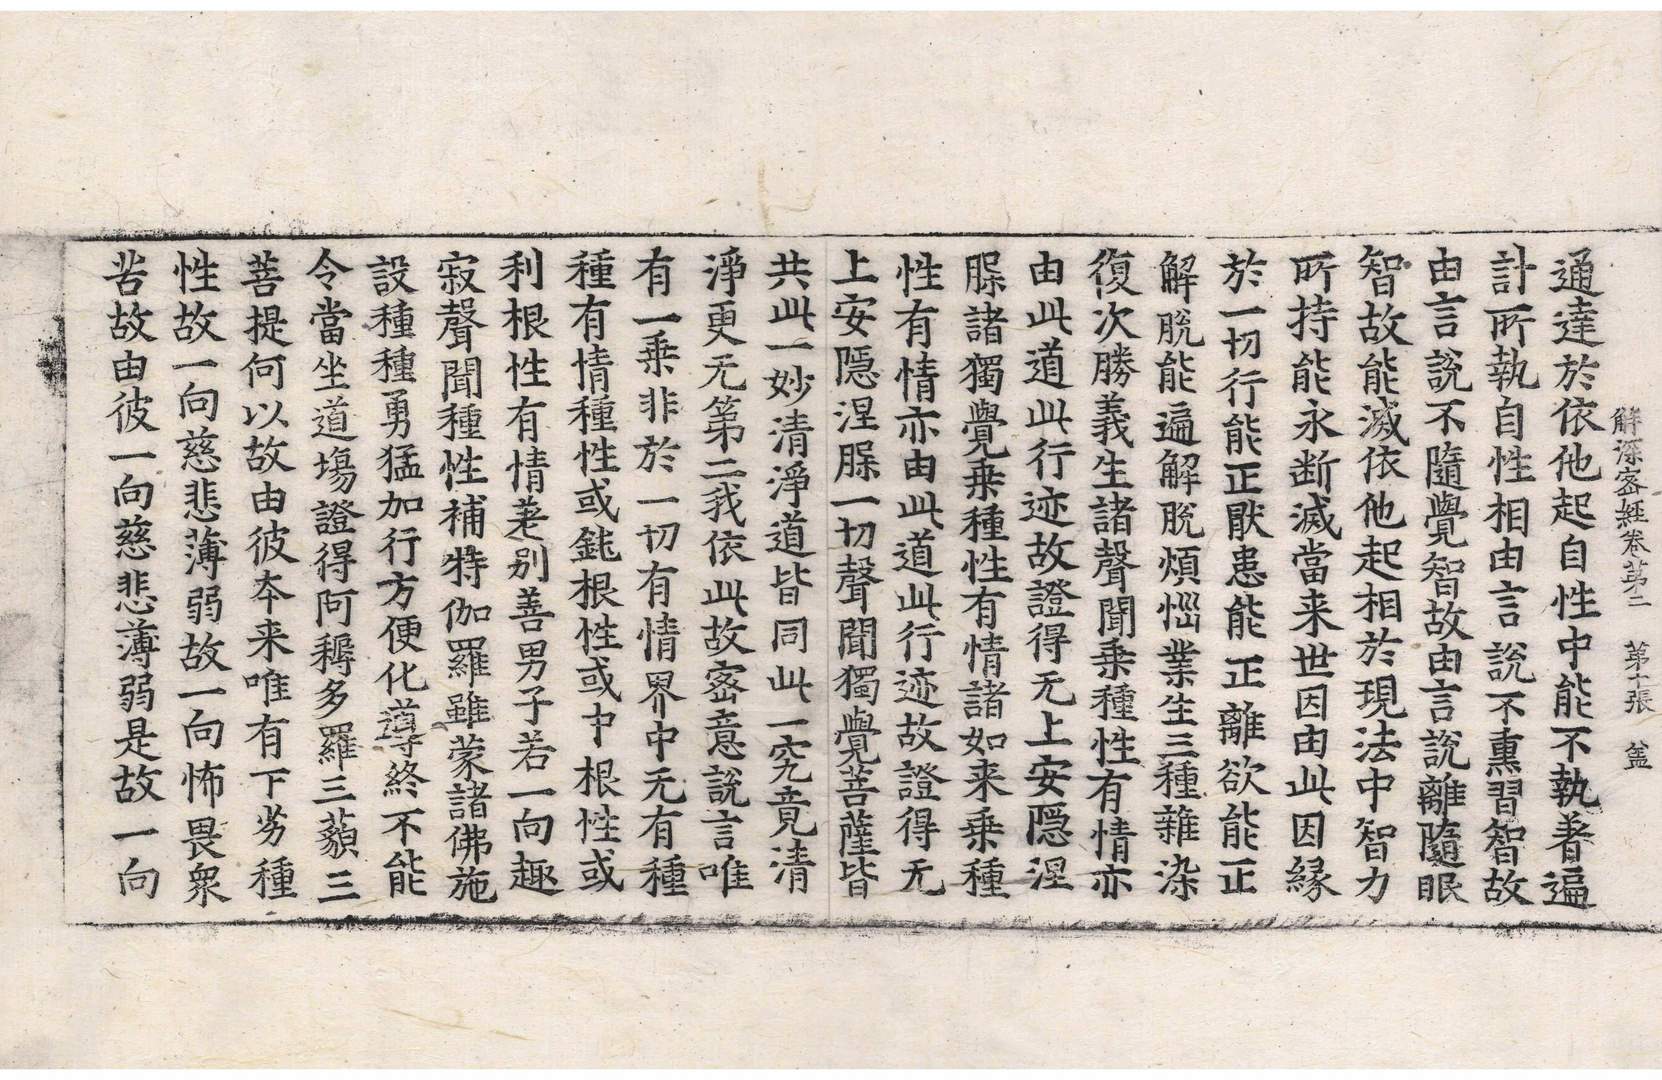 解深密經卷第二　第十張　盆
通達於依他起自性中能不執著遍
計所執自性相由言說不熏習智故
由言說不隨覺智故由言說離隨眠
智故能滅依他起相於現法中智力
所持能永断滅當来世因由此因緣
於一切行能正猒患能正離欲能正
解脫能遍解脫煩惱業生三種雜染
復次勝義生諸聲聞乗種性有情亦
由此道此行迹故證得无上安隱涅
槃諸獨覺乗種性有情諸如来乗種
性有情亦由此道此行迹故證得无
上安隱涅槃一切聲聞獨覺菩薩皆
共此一妙清淨道皆同此一究竟清
淨更无第二我依此故密意說言唯
有一乗非於一切有情界中无有種
種有情種性或鈍根性或中根性或
利根性有情差别善男子若一向趣
寂聲聞種性補特伽羅雖蒙諸佛施
設種種勇猛加行方便化導終不能
令當坐道場證得阿耨多羅三藐三
菩提何以故由彼夲来唯有下劣種
性故一向慈悲薄弱故一向怖畏衆
苦故由彼一向慈悲薄弱是故一向